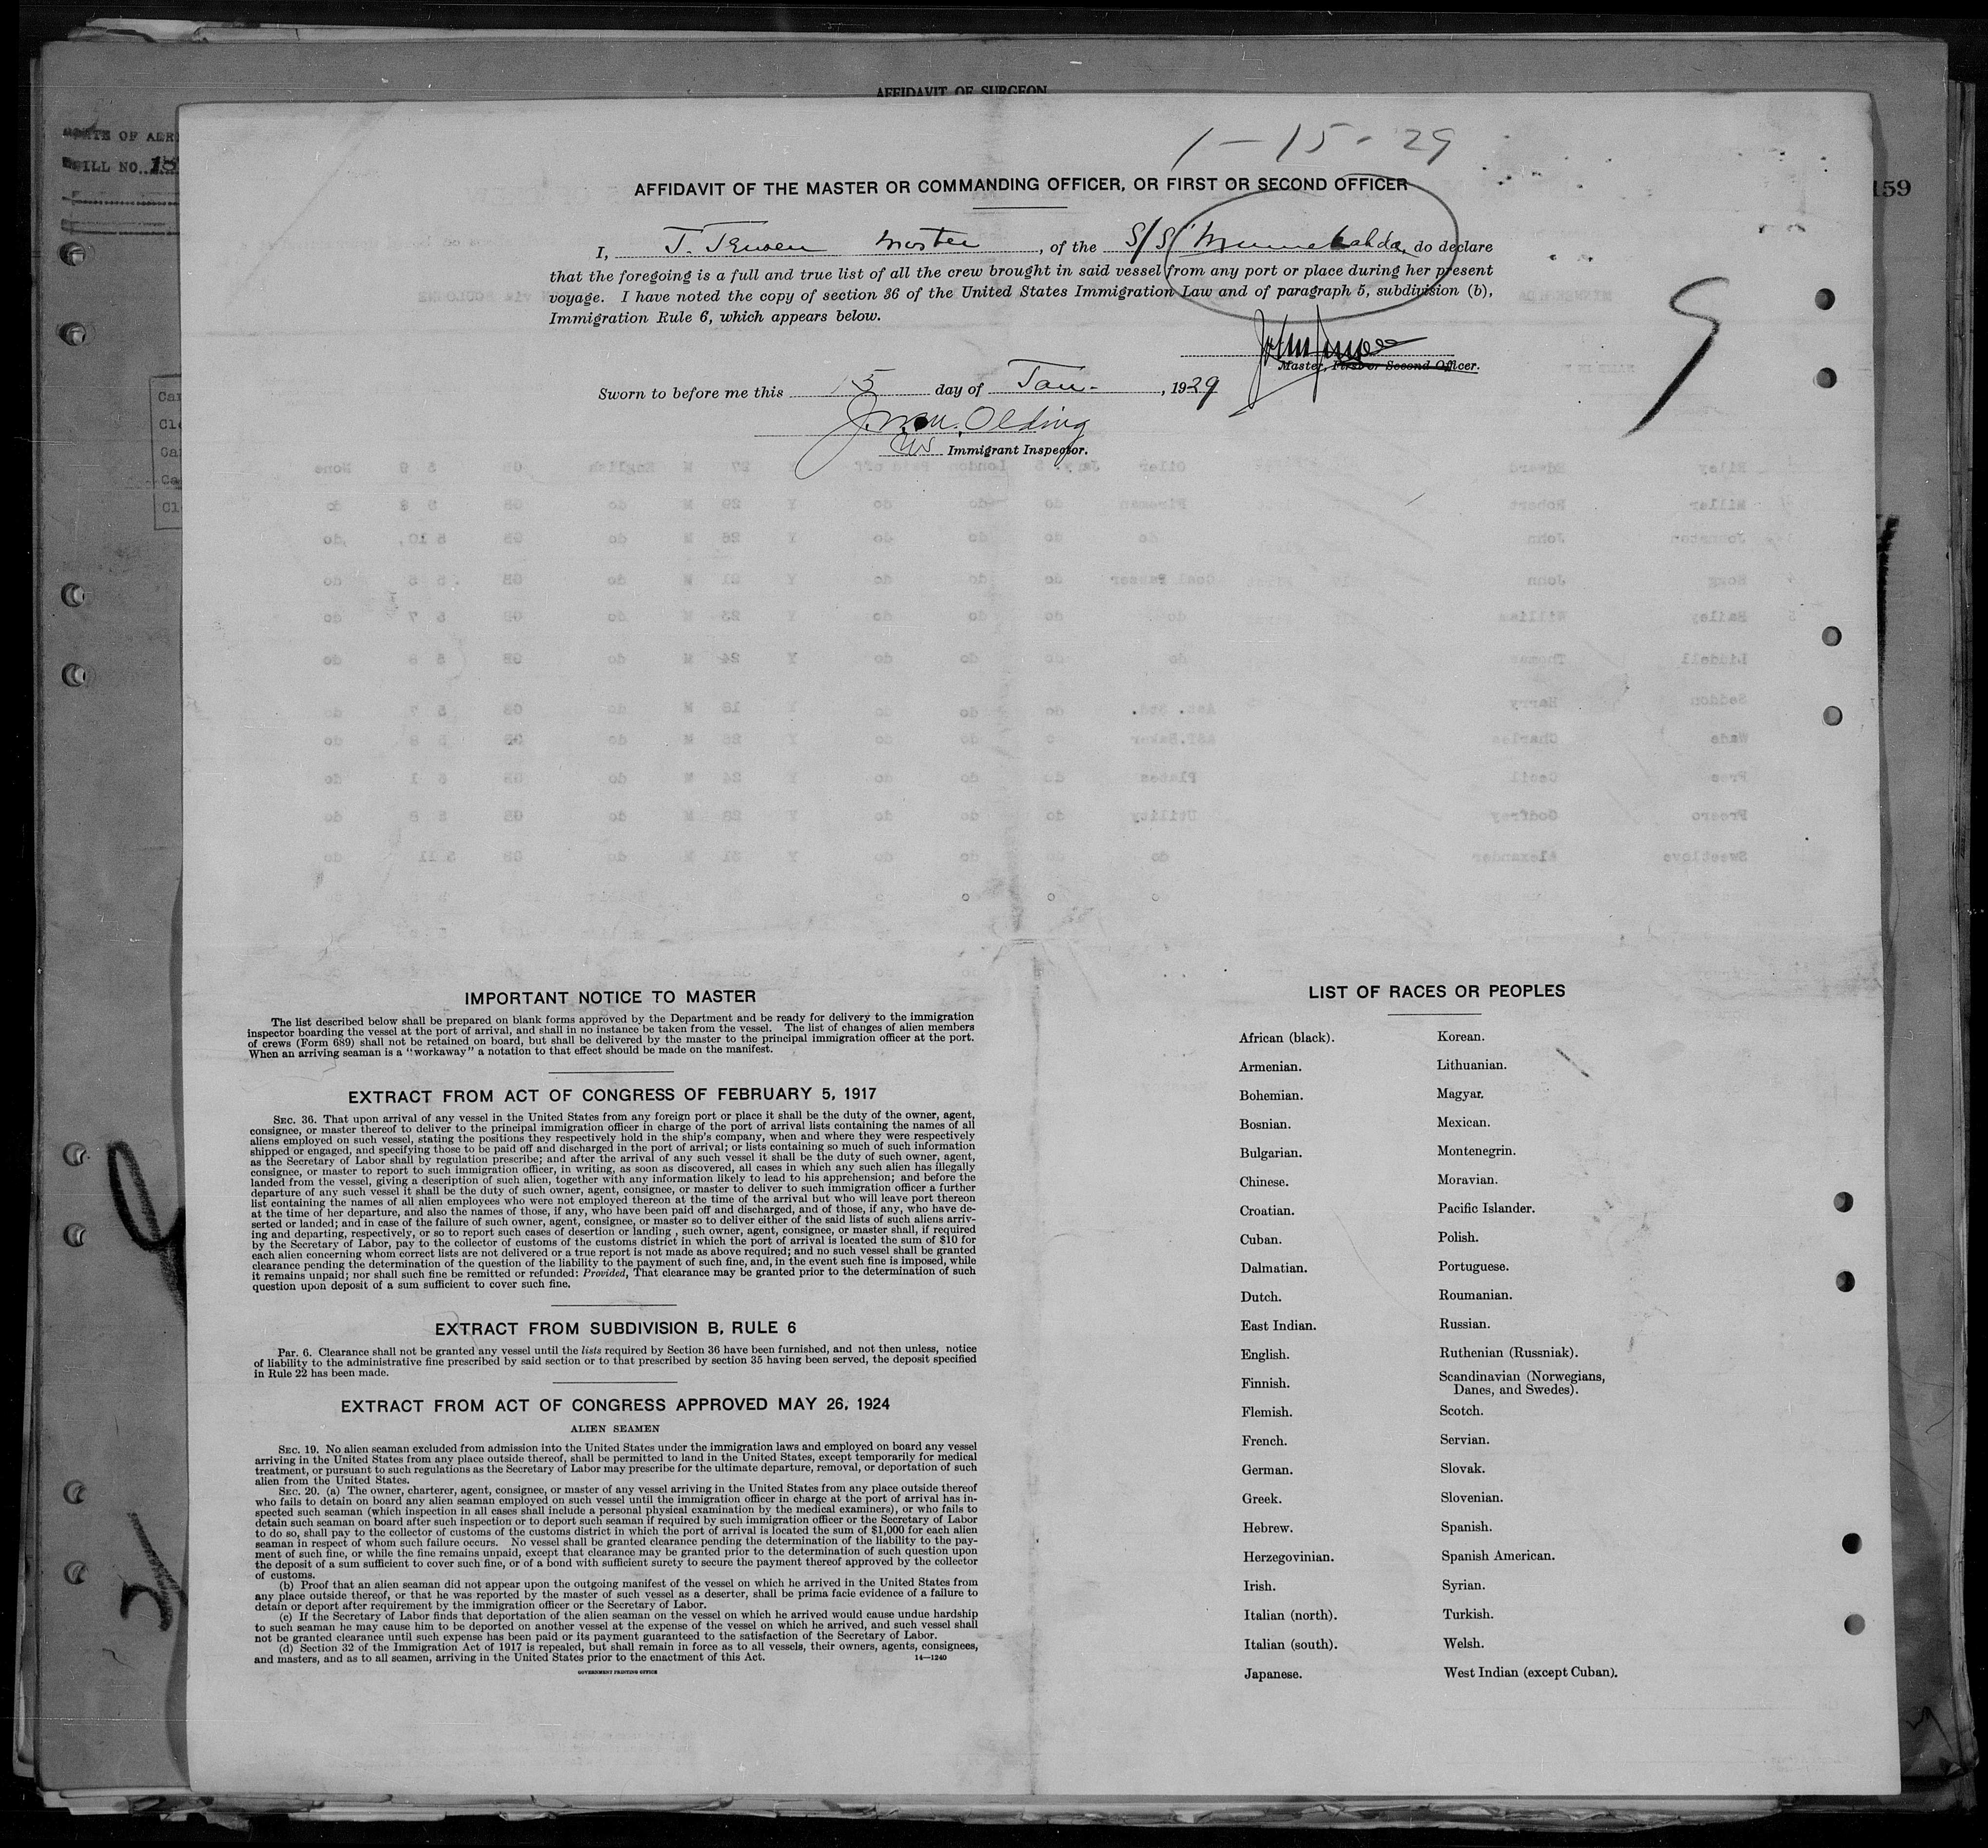 AFFIDAVIT OF SURGEON
BILL NO.
159
1-15-29
AFFIDAVIT OF THE MASTER OR COMMANDING OFFICER, OR FIRST OR SECOND OFFICER
I, Master, of the S/S do declare
that the foregoing is a full and true list of all the crew brought in said vessel from any port or place during her present
voyage. I have noted the copy of section 36 of the United States Immigration Law and of paragraph 5, subdivision (b),
Immigration Rule 6, which appears below.
Master, First or Second Officer.
Sworn to before me this 15 day of Jan., 1929
Olding
US Immigrant Inspector.
IMPORTANT NOTICE TO MASTER
The list described below shall be prepared on blank forms approved by the Department and be ready for delivery to the immigration
inspector boarding the vessel at the port of arrival, and shall in no instance be taken from the vessel. The list of changes of alien members
of crews (Form 689) shall not be retained on board, but shall be delivered by the master to the principal immigration officer at the port.
When an arriving seaman is a "workaway" a notation to that effect should be made on the manifest.
EXTRACT FROM ACT OF CONGRESS OF FEBRUARY 5, 1917
SEC. 36. That upon arrival of any vessel in the United States from any foreign port or place it shall be the duty of the owner, agent,
consignee, or master thereof to deliver to the principal immigration officer in charge of the port of arrival lists containing the names of all
aliens employed on such vessel, stating the positions they respectively hold in the ship's company, when and where they were respectively
shipped or engaged, and specifying those to be paid off and discharged in the port of arrival; or lists containing so much of such information
as the Secretary of Labor shall by regulation prescribe; and after the arrival of any such vessel it shall be the duty of such owner, agent,
consignee, or master to report to such immigration officer, in writing, as soon as discovered, all cases in which any such alien has illegally
landed from the vessel, giving a description of such alien, together with any information likely to lead to his apprehension; and before the
departure of any such vessel it shall be the duty of such owner, agent, consignee, or master to deliver to such immigration officer a further
list containing the names of all alien employees who were not employed thereon at the time of the arrival but who will leave port thereon
at the time of her departure, and also the names of those, if any, who have been paid off and discharged, and of those, if any, who have de-
serted or landed; and in case of the failure of such owner, agent, consignee, or master so to deliver either of the said lists of such aliens arriv-
ing and departing, respectively, or so to report such cases of desertion or landing , such owner, agent, consignee, or master shall, if required
by the Secretary of Labor, pay to the collector of customs of the customs district in which the port of arrival is located the sum of $10 for
each alien concerning whom correct lists are not delivered or a true report is not made as above required; and no such vessel shall be granted
clearance pending the determination of the question of the liability to the payment of such fine, and, in the event such fine is imposed, while
it remains unpaid; nor shall such fine be remitted or refunded: Provided, That clearance may be granted prior to the determination of such
question upon deposit of a sum sufficient to cover such fine.
EXTRACT FROM SUBDIVISION B, RULE 6
Par. 6. Clearance shall not be granted any vessel until the lists required by Section 36 have been furnished, and not then unless, notice
of liability to the administrative fine prescribed by said section or to that prescribed by section 35 having been served, the deposit specified
in Rule 22 has been made.
EXTRACT FROM ACT OF CONGRESS APPROVED MAY 26, 1924
ALIEN SEAMEN
SEC. 19. No alien seaman excluded from admission into the United States under the immigration laws and employed on board any vessel
arriving in the United States from any place outside thereof, shall be permitted to land in the United States, except temporarily for medical
treatment, or pursuant to such regulations as the Secretary of Labor may prescribe for the ultimate departure, removal, or deportation of such
alien from the United States.
SEC. 20. (a) The owner, charterer, agent, consignee, or master of any vessel arriving in the United States from any place outside thereof
who fails to detain on board any alien seaman employed on such vessel until the immigration officer in charge at the port of arrival has in-
spected such seaman (which inspection in all cases shall include a personal physical examination by the medical examiners), or who fails to
detain such seaman on board after such inspection or to deport such seaman if required by such immigration officer or the Secretary of Labor
to do so, shall pay to the collector of customs of the customs district in which the port of arrival is located the sum of $1,000 for each alien
seaman in respect of whom such failure occurs. No vessel shall be granted clearance pending the determination of the liability to the pay-
ment of such fine, or while the fine remains unpaid, except that clearance may be granted prior to the determination of such question upon
the deposit of a sum sufficient to cover such fine, or of a bond with sufficient surety to secure the payment thereof approved by the collector
of customs.
(b) Proof that an alien seaman did not appear upon the outgoing manifest of the vessel on which he arrived in the United States from
any place outside thereof, or that he was reported by the master of such vessel as a deserter, shall be prima facie evidence of a failure to
detain or deport after requirement by the immigration officer or the Secretary of Labor.
(c) If the Secretary of Labor finds that deportation of the alien seaman on the vessel on which he arrived would cause undue hardship
to such seaman he may cause him to be deported on another vessel at the expense of the vessel on which he arrived, and such vessel shall
not be granted clearance until such expense has been paid or its payment guaranteed to the satisfaction of the Secretary of Labor.
(d) Section 32 of the Immigration Act of 1917 is repealed, but shall remain in force as to all vessels, their owners, agents, consignees,
and masters, and as to all seamen, arriving in the United States prior to the enactment of this Act. 14—1240
GOVERNMENT PRINTING OFFICE
LIST OF RACES OR PEOPLES
African (black). Korean.
Armenian. Lithuanian.
Bohemian. Magyar.
Bosnian. Mexican.
Bulgarian. Montenegrin.
Chinese. Moravian.
Croatian. Pacific Islander.
Cuban. Polish.
Dalmatian. Portuguese.
Dutch. Roumanian.
East Indian. Russian.
English. Ruthenian (Russniak).
Finnish. Scandinavian (Norwegians,
Danes, and Swedes).
Flemish. Scotch.
French. Servian.
German. Slovak.
Greek. Slovenian.
Hebrew. Spanish.
Herzegovinian. Spanish American.
Irish. Syrian.
Italian (north). Turkish.
Italian (south). Welsh.
Japanese. West Indian (except Cuban).